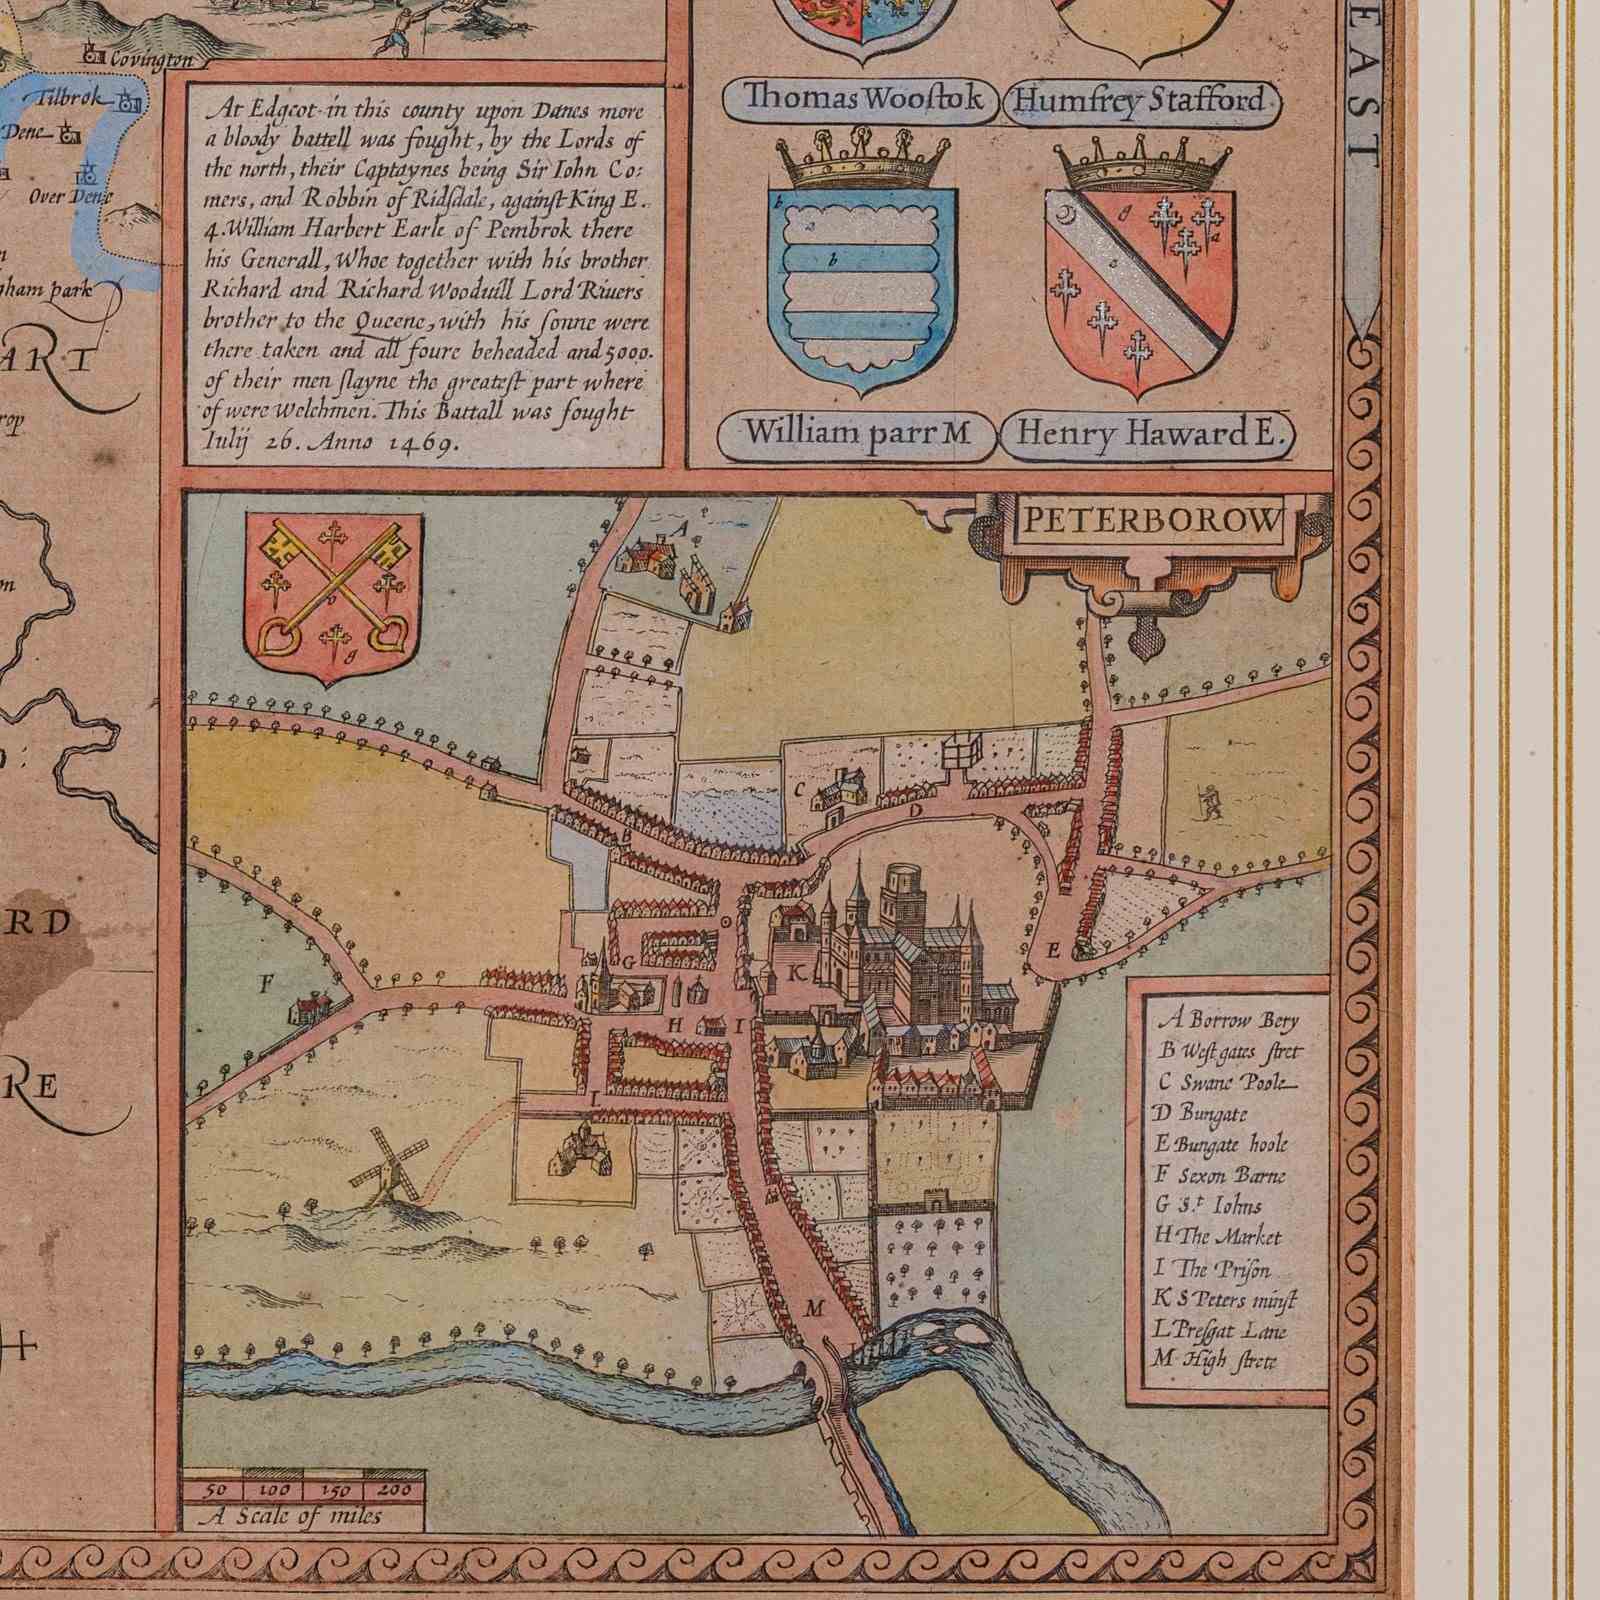 Covington
Tilbrok
Dene
Over Dene
ham park
ART
rop
on
RD
RE
At Edgcot in this county upon Danes more
a bloody battell was fought, by the Lords of
the north, their Captaynes being Sir Iohn Co:
mers, and Robbin of Ridſdale, againſt King E.
4. William Harbert Earle of Pembrok there
his Generall, Whoe together with his brother
Richard and Richard Wooduill Lord Riuers
brother to the Queene, with his ſonne were
there taken and all foure beheaded and 5000.
of their men ſlayne the greateſt part where
of were Welchmen. This Battall was fought
Iulij 26. Anno 1469.
Thomas Wooſtok
Humfrey Stafford
b
a
b
g
a
a
William parr M
Henry Haward E.
EAST
PETERBOROW
g
A
B
C
D
E
F
G
H
I
K
L
M
A Borrow Bery
B Weſt gates ſtret
C Swane Poole
D Bungate
E Bungate hoole
F Sexon Barne
G S.t Iohns
H The Market
I The Priſon
K S Peters minſt
L Preſgat Lane
M High ſtrete
50 100 150 200
A Scale of miles